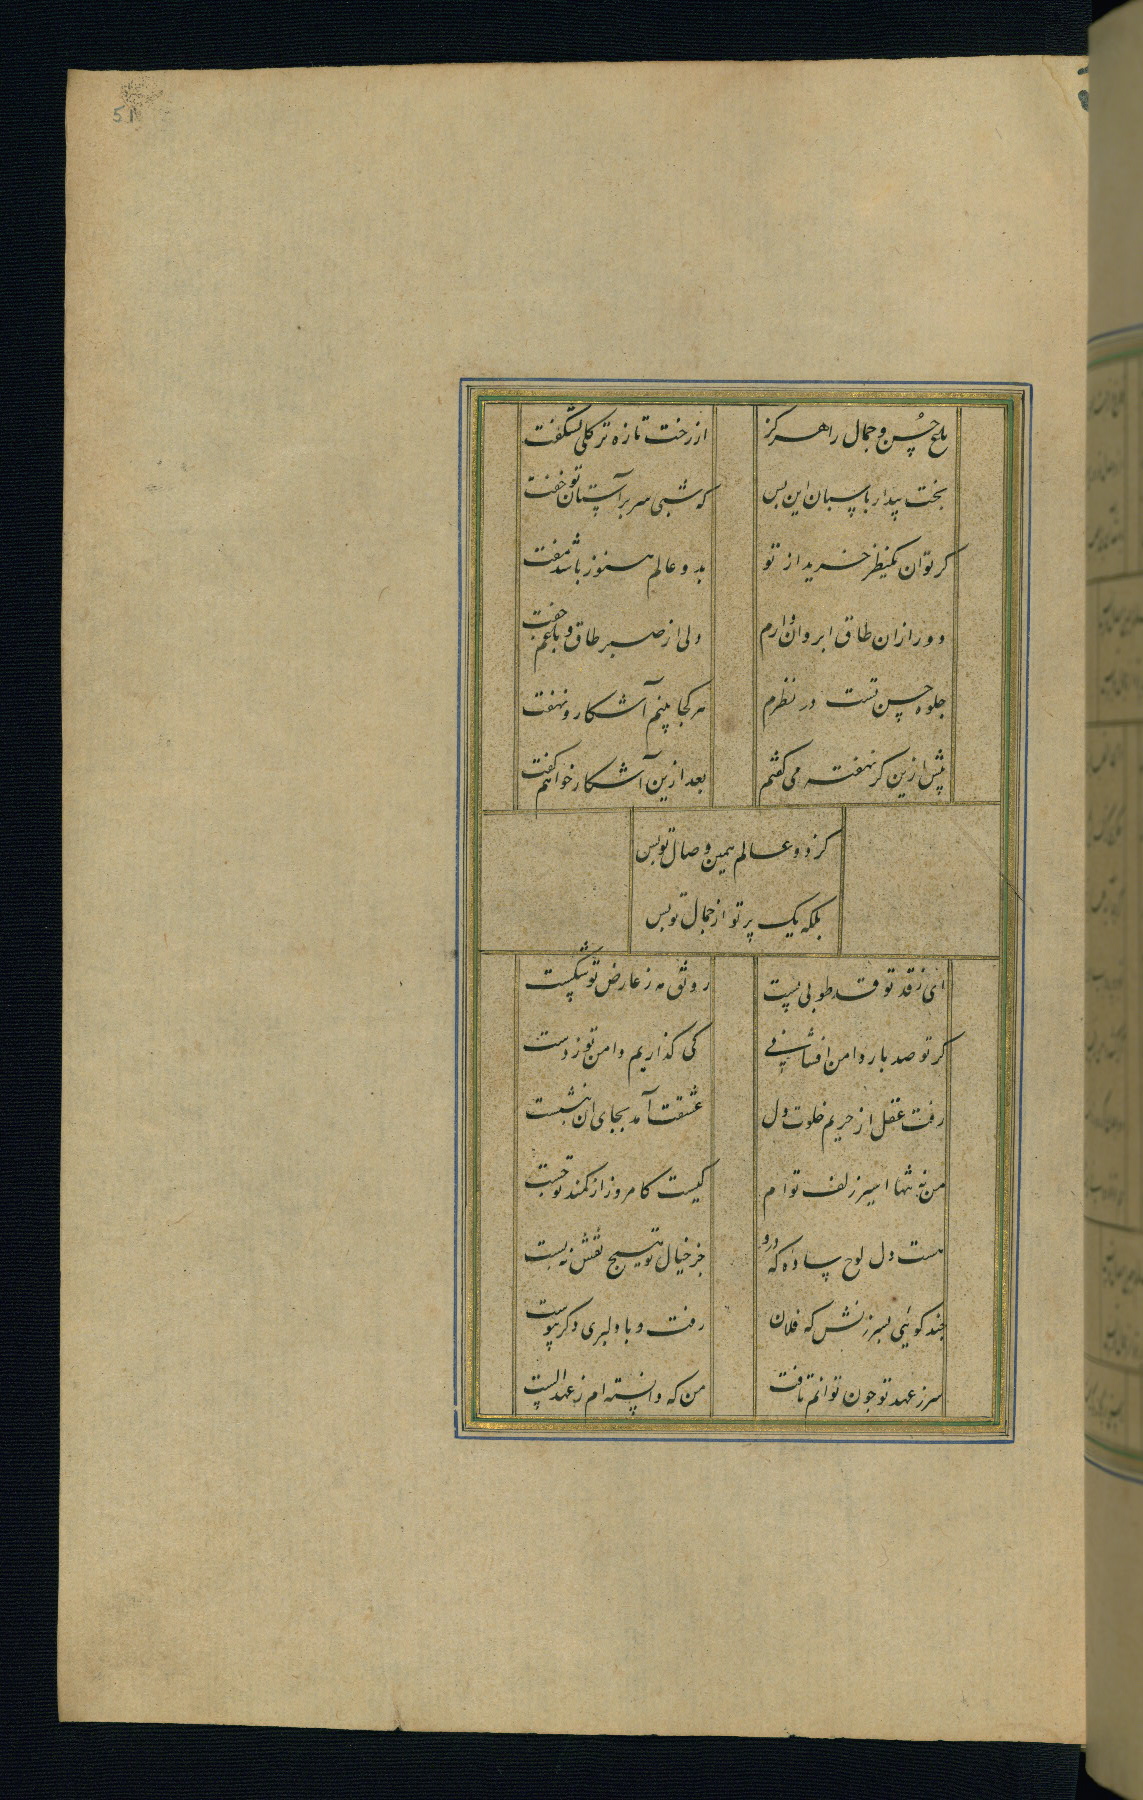 51
باغ حسن و جمال را هرگز
از رخت تازه تر کلی نشکفت
بخت بیدار پاسبان این بس
که شبی سر بر آستان تو خفت
کر توان یکنظر خرید از تو
بدو عالم هنوز باشد مفت
دور ازان طاق ابروان دارم
دلی از صبر طاق و با غم جفت
جلوه حسن تست در نظرم
هر کجا بینم آشکار و نهفت
پیش ازین کر نهفته می کفتم
بعد ازین آشکار خواهم کفت
کز دو عالم همین وصال تو بس
بلکه یک پرتو از جمال تو بس
ای ز قد تو قد طوبی پست
رونق مه ز عارض تو شکست
کر تو صد بار دامن افشانی
کی کذاریم دامن تو ز دست
رفت عقل از حریم خلوت دل
عشقت آمد بجای ان بنشست
من نه تنها اسیر زلف توام
کیست کامروز از کمند تو جست
هست دل لوح ساده که درو
جز خیال تو هیچ نقش نه بست
چند کوئی بسرزنش که فلان
رفت و با دلبری دکر پیوست
سر ز عهد تو چون توانم تافت
من که دانسته ام ز عهد الست